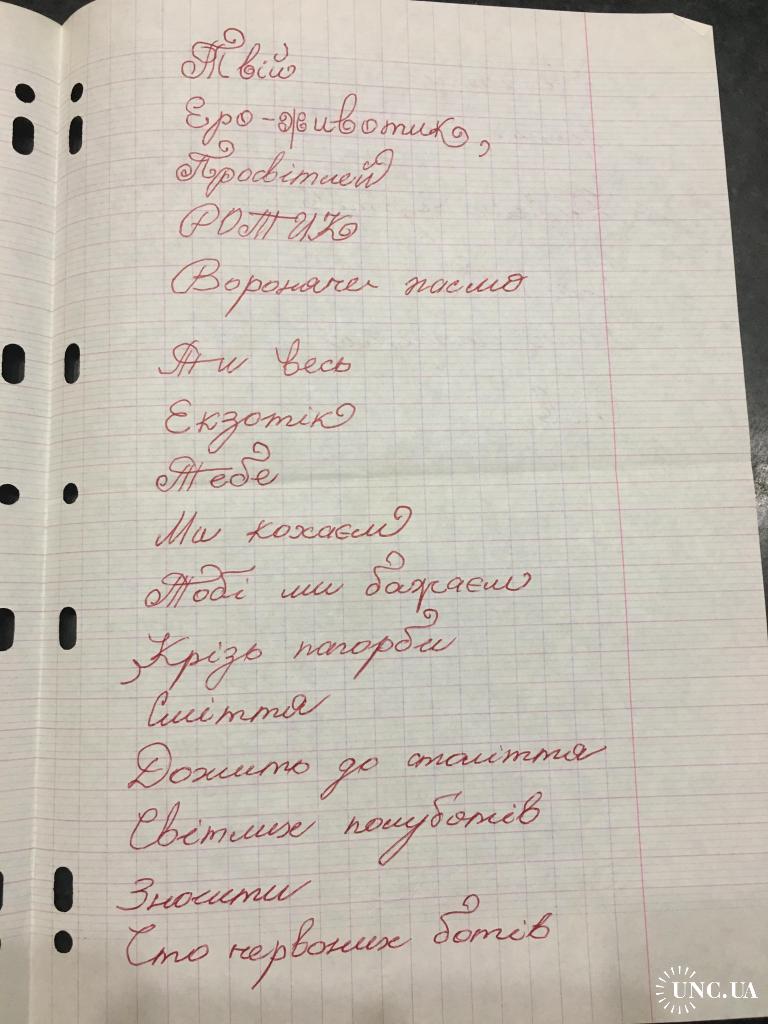 Твій
Еро-животик,
Просвітлей
РОТИК
Вороняче пасмо
Ти весь
Екзотік
Тебе
Ми кохаєм
Тобі ми бажаєм
Крізь пагорби
Сміття
Дожить до століття
Світлих полуботів
Зносити
Сто червоних ботів
UNC.UA